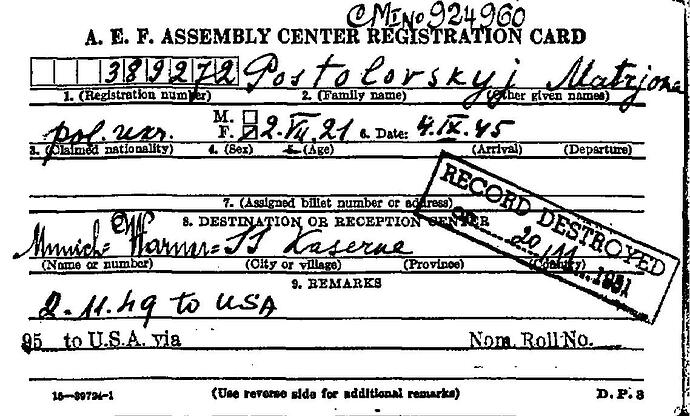 CM1 No 924960
A. E. F. ASSEMBLY CENTER REGISTRATION CARD
389272 Postolovskyj Matrjona
1. (Registration number) 2. (Family name) (Other given names)
M.
pol. ukr. F. 2.VII.21 6. Date: 4.IX.45
3. (Claimed nationality) 4. (Sex) 5. (Age) (Arrival) (Departure)
7. (Assigned billet number or address)
RECORD DESTROYED
on 20/11 1951
8. DESTINATION OR RECEPTION CENTER
Munich= Warner=SS Kaserne
(Name or number) (City or village) (Province) (Country)
9. REMARKS
2-11.49 to USA
95 to U.S.A. via Nom. Roll No.
16—39724-1 (Use reverse side for additional remarks) D.P. 3